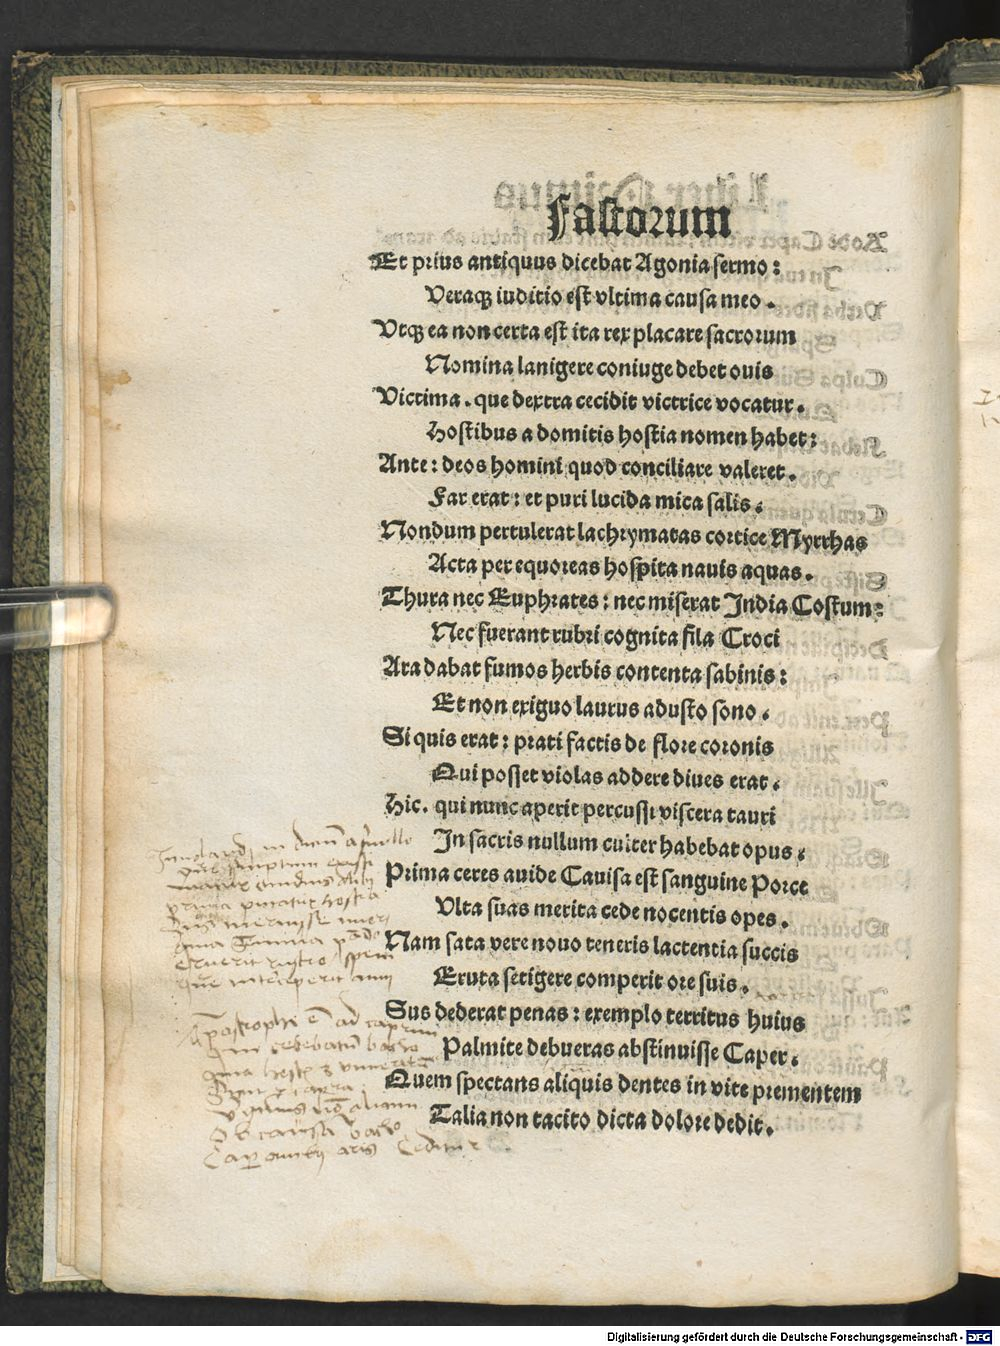 Fastorum
Et prius antiquus dicebat Agonia sermo:
Veraqꝫ iuditio est vltima causa meo.
Vtqꝫ ea non certa est ita rex placare sacrorum
Nomina lanigere coniuge debet ouis
Victima. que dextra cecidit victrice vocatur.
Hostibus a domitis hostia nomen habet:
Ante: deos homini quod conciliare valeret.
Far erat: et puri lucida mica salis.
Nondum pertulerat lachrymatas cortice Myrrhas
Acta per equoreas hospita nauis aquas.
Thura nec Euphrates: nec miserat India Costum:
Nec fuerant rubri cognita fila Croci
Ara dabat fumos herbis contenta sabinis:
Et non exiguo laurus adusto sono.
Si quis erat: prati factis de flore coronis
Qui posset violas addere diues erat.
Hic. qui nunc aperit percussi viscera tauri
In sacris nullum culter habebat opus.
Prima ceres auide Cauisa est sanguine Porce
Vlta suas merita cede nocentis opes.
Nam sata vere nouo teneris lactentia succis
Eruta setigere comperit ore suis.
Sus dederat penas: exemplo territus huius
Palmite debueras abstinuisse Caper.
Quem spectans aliquis dentes in vite prementem
Talia non tacito dicta dolore dedit.
prima putatur hostia
Eruerit rostro spem
Apostrophe ad caprum
Digitalisierung gefördert durch die Deutsche Forschungsgemeinschaft - DFG